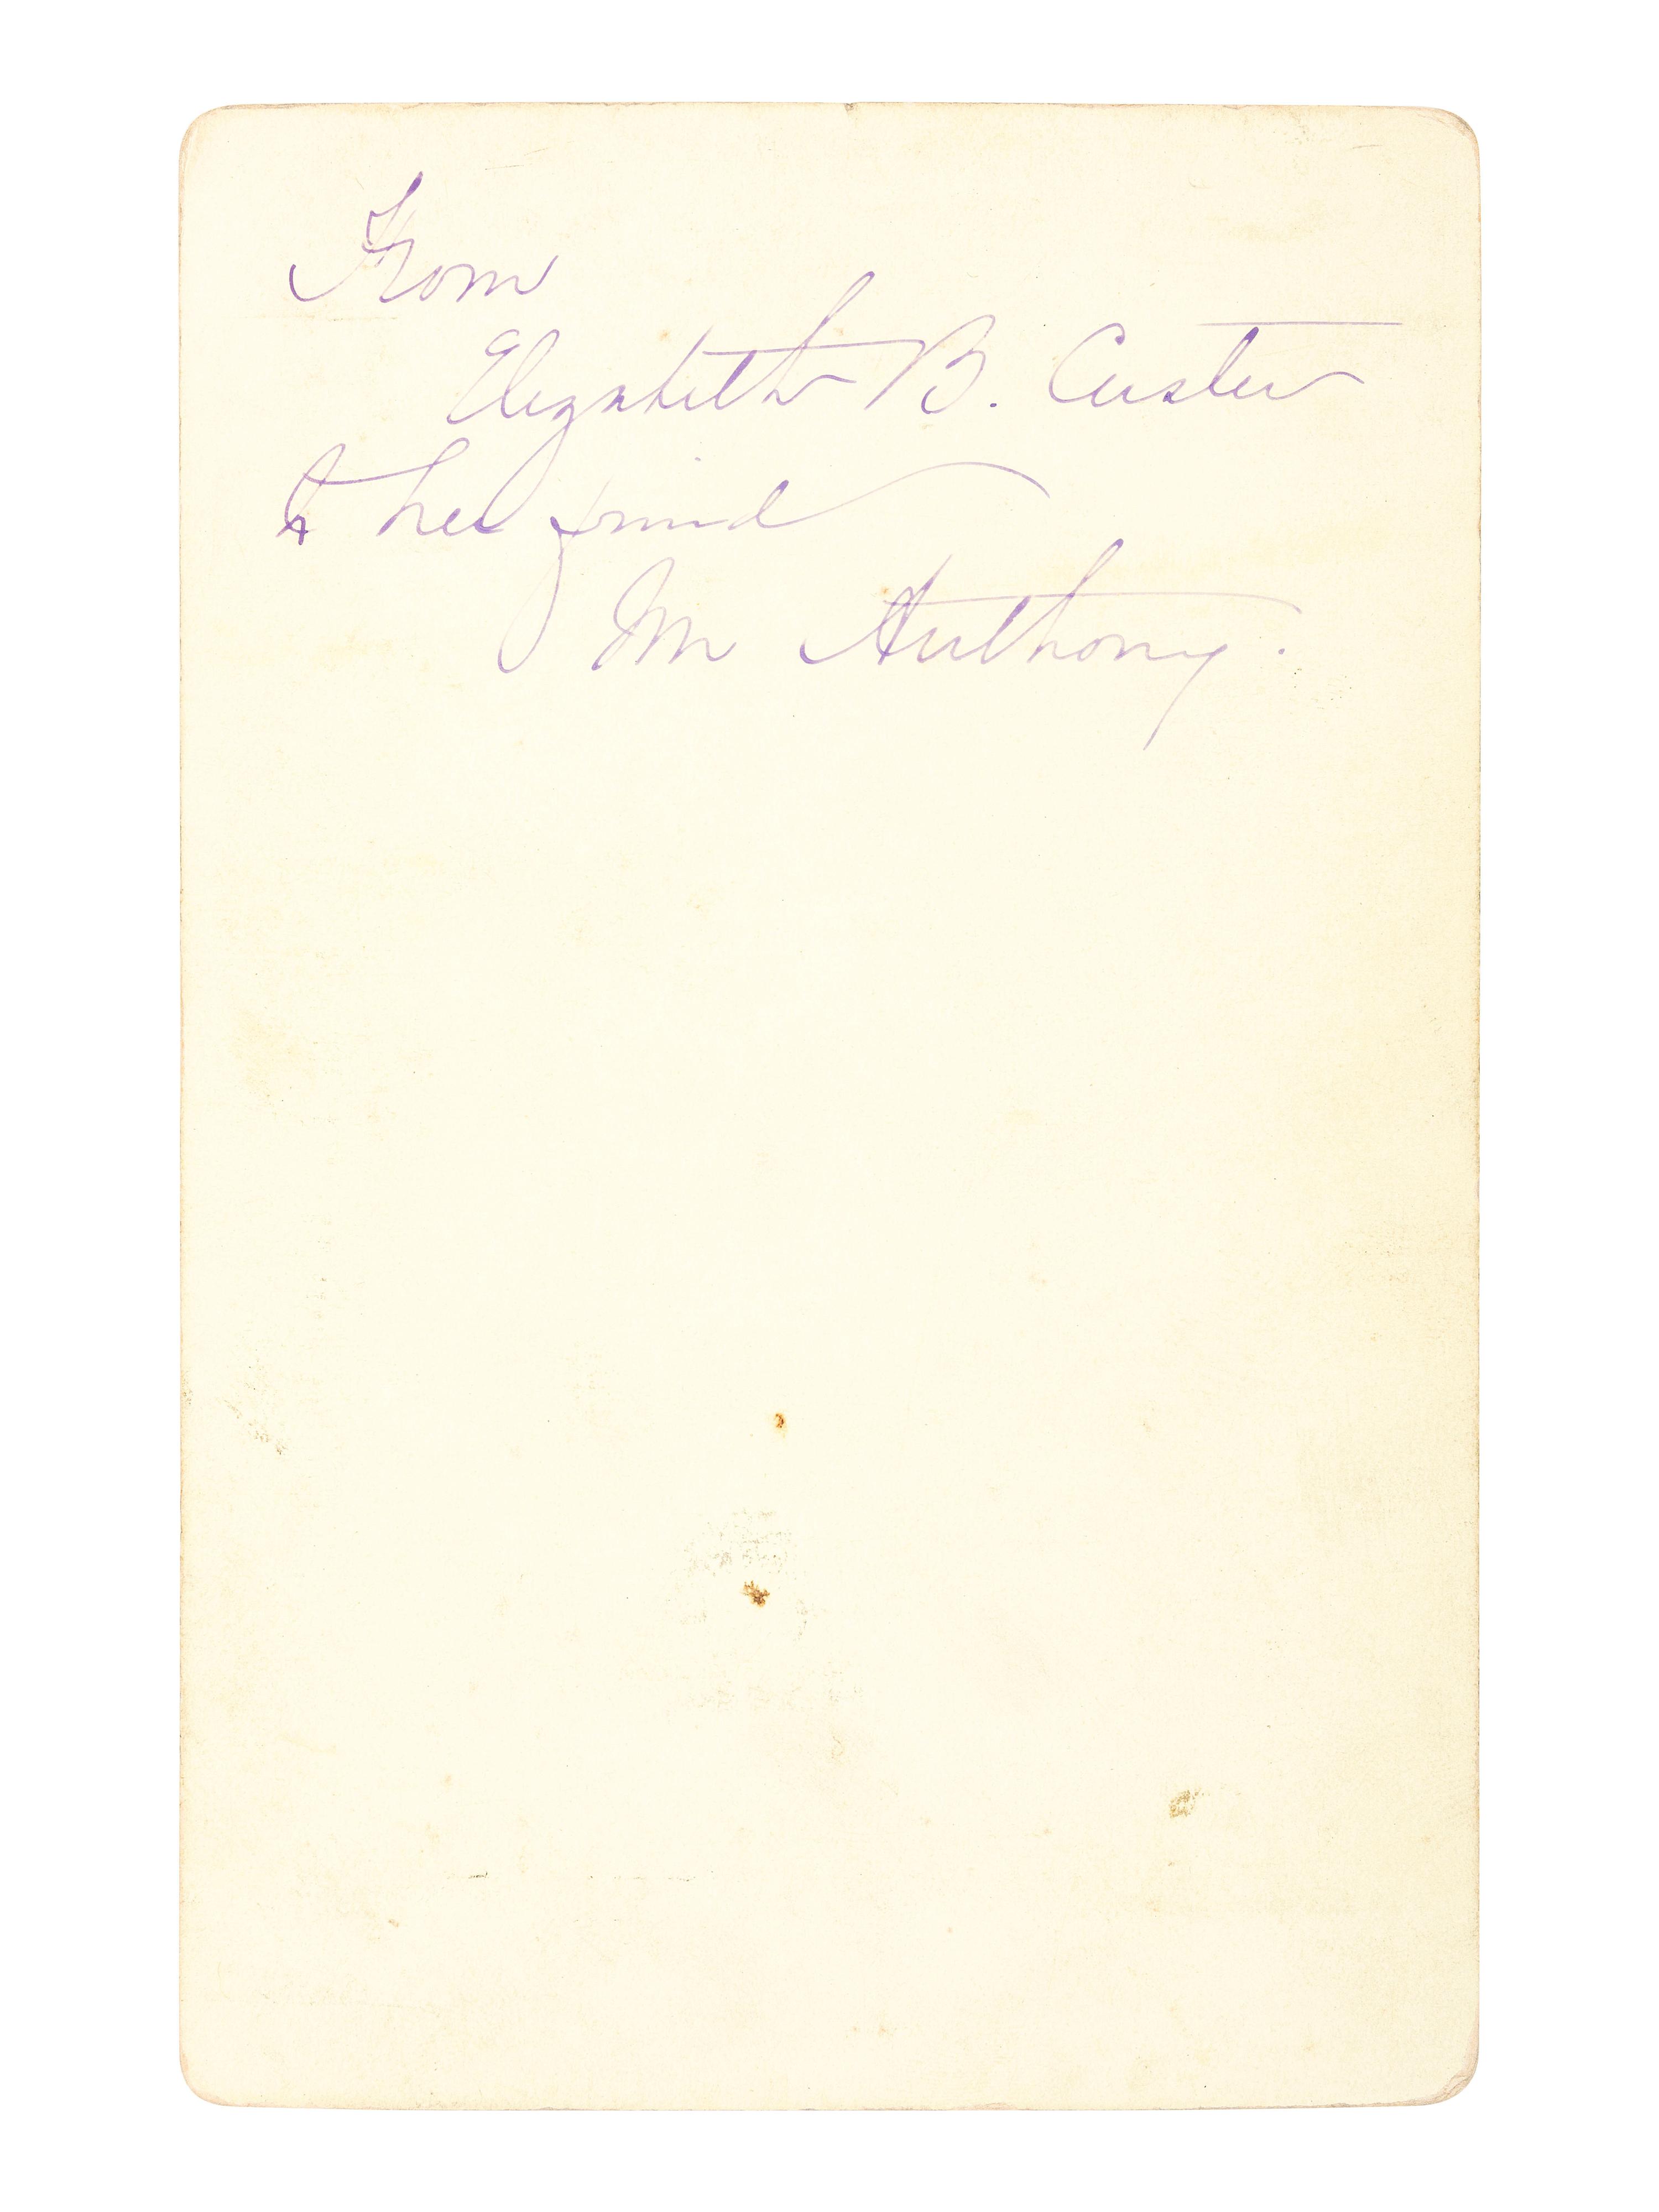 From
Elizabeth B. Custer
to her friend
Mr Anthony.